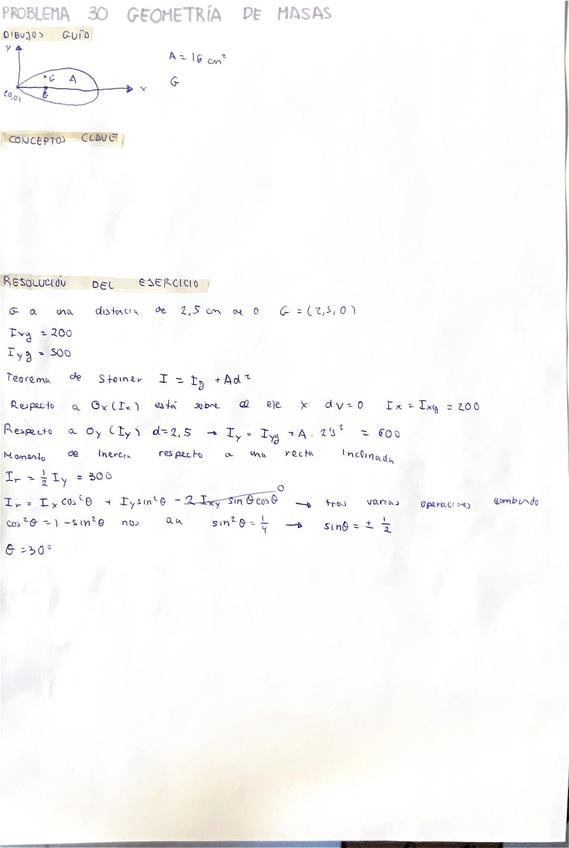 PROBLEMA 30 GEOMETRÍA DE MASAS
DIBUJOS GUÍA
y
A = 16 cm²
G A
G
x
(0,0)
G
CONCEPTOS CLAVE
RESOLUCIÓN DEL EJERCICIO
G a una distancia de 2,5 cm de O G = (2,5,0)
Ixg = 200
Iyg = 500
Teorema de Steiner I = Ig + Ad²
Respecto a Ox (Ix) está sobre el eje x dv = 0 Ix = Ixg = 200
Respecto a Oy (Iy) d = 2,5 → Iy = Iyg + A · 2's² = 600
Momento de Inercia respecto a una recta inclinada
Ir = 1/2 Iy = 300
Ir = Ix cos²θ + Iy sin²θ - 2 Ixy sin θ cos θ 0 → tras varias operaciones combinando
cos²θ = 1 - sin²θ nos da sin²θ = 1/4 → sinθ = ± 1/2
θ = 30º